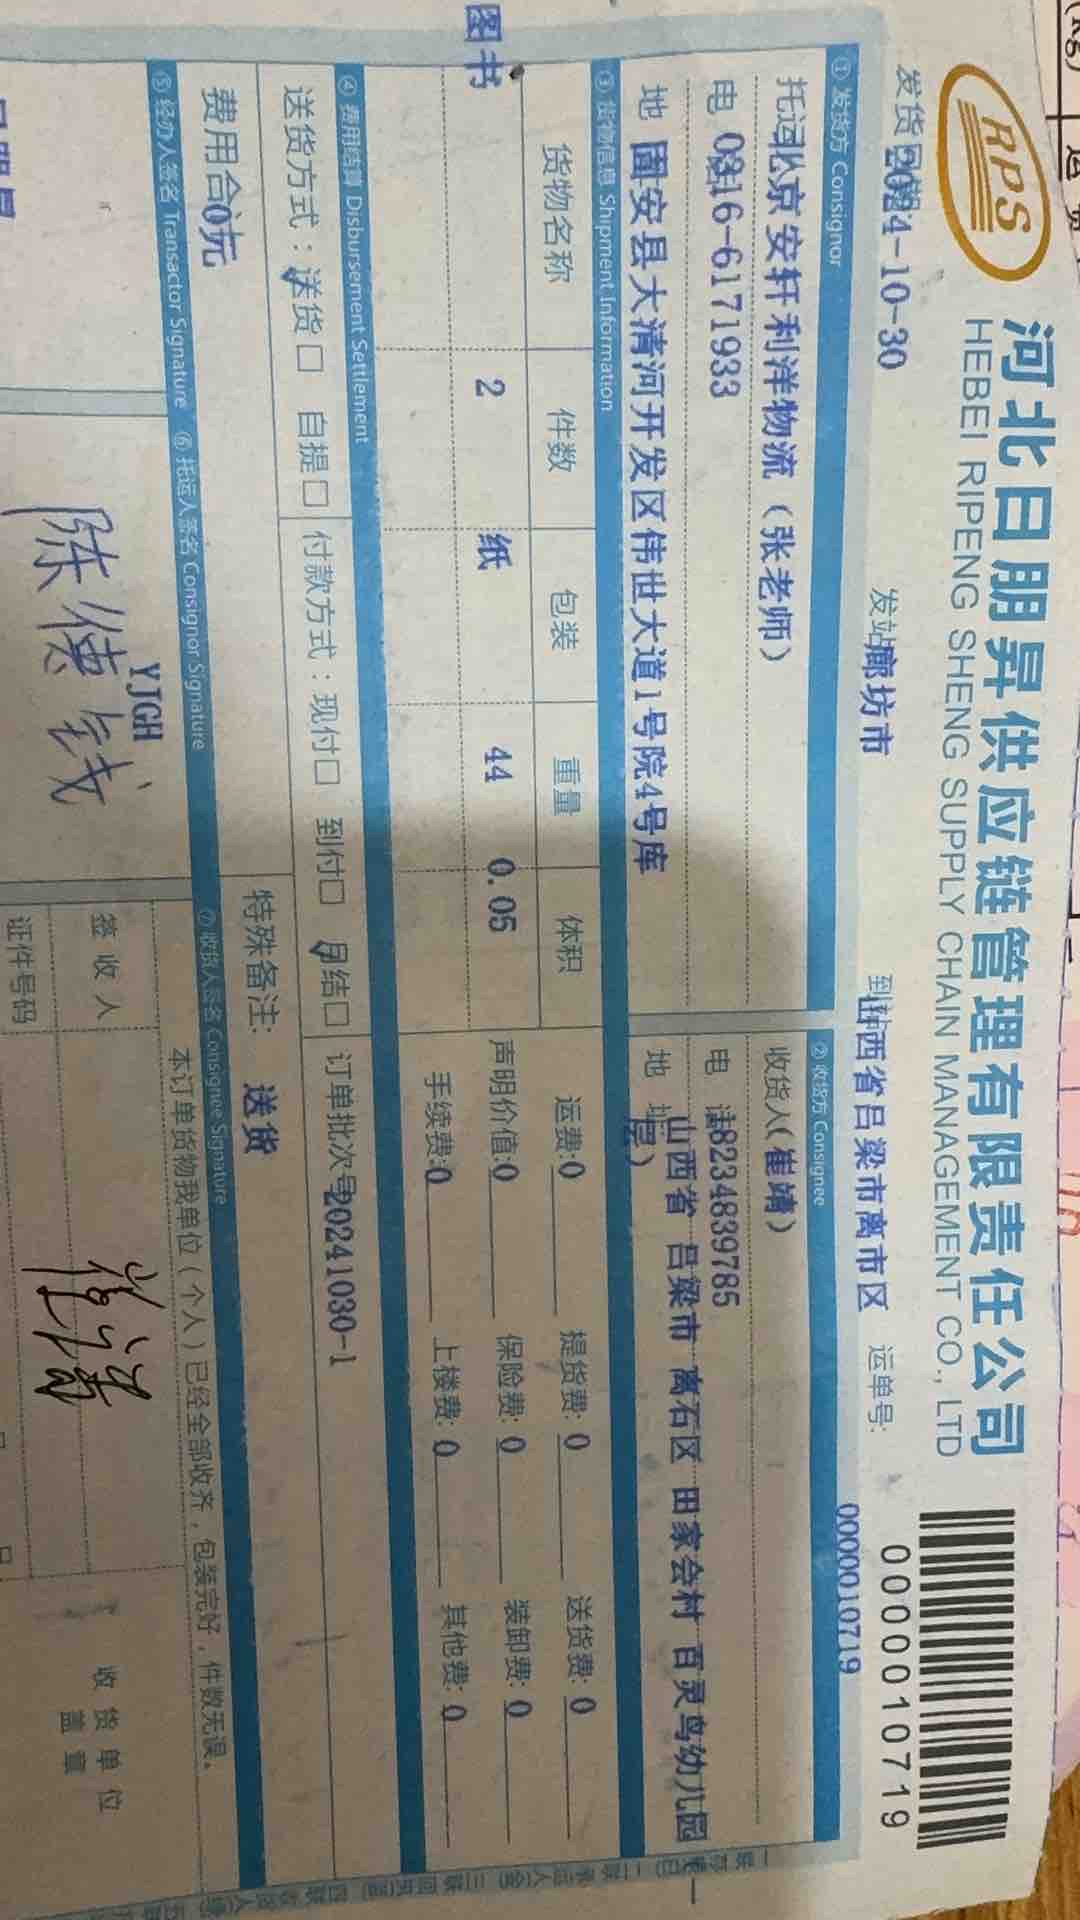 RPS
河北日朋昇供应链管理有限责任公司
HEBEI RIPENG SHENG SUPPLY CHAIN MANAGEMENT CO., LTD
0000010719
发货日期 2024-10-30 发站 廊坊市 到站 山西省吕梁市离市区 运单号: 0000010719
① 发货方 Consignor
托运 北京安轩利洋物流（张老师）
电话 0316-6171933
地 固安县大清河开发区伟世大道1号院4号库
② 收货方 Consignee
收货人（崔靖）
电 话 18234839785
地 址 山西省 吕梁市 离石区 田家会村 百灵鸟幼儿园 一
层）
③ 货物信息 Shipment Information
货物名称 件数 包装 重量 体积
图书 2 纸 44 0.05
运费:0 提货费: 0 送货费: 0
声明价值:0 保险费: 0 装卸费: 0
手续费:0 上楼费: 0 其他费: 0
④ 费用结算 Disbursement Settlement
送货方式：送货☐ 自提☐ 付款方式：现付☐ 到付☐ 月结☐ 订单批次号20241030-1
费用合0元
特殊备注: 送货
⑤ 经办人签名 Transactor Signature
⑥ 托运人签名 Consignor Signature
⑦ 收货人签名 Consignee Signature
YJGH
本订单货物我单位（个人）已经全部收齐，包装完好，件数无误。
签收人
证件号码
收货单位
盖章